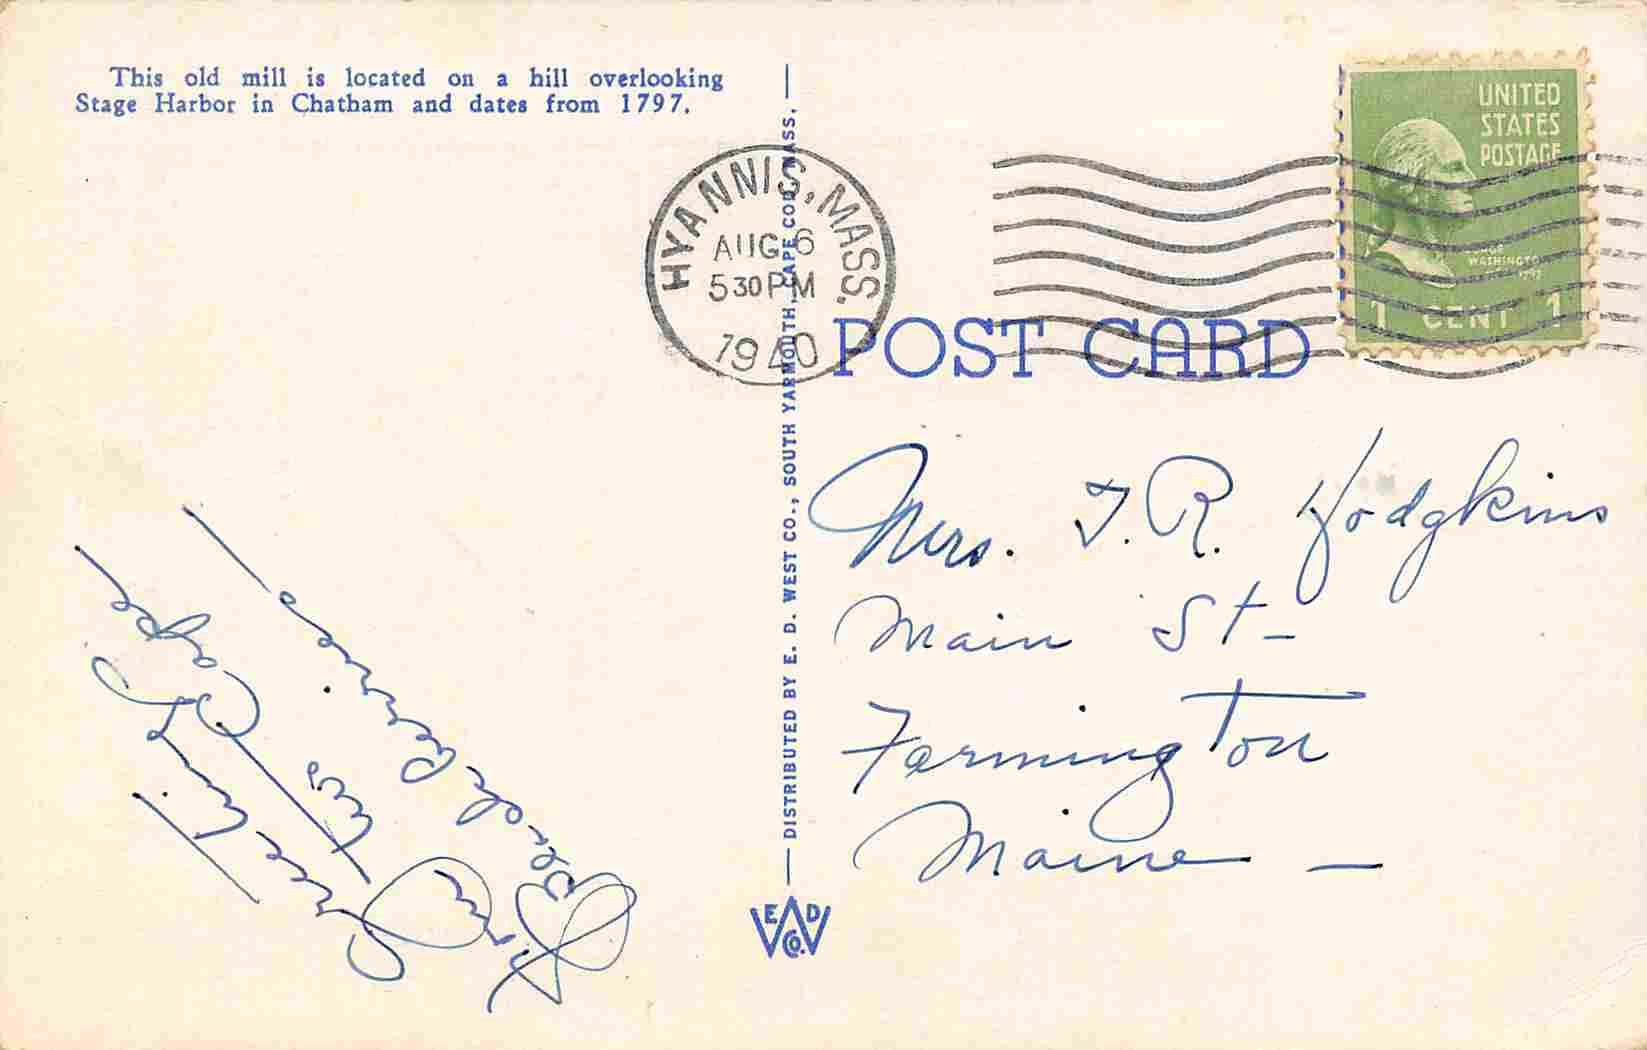 This old mill is located on a hill overlooking
Stage Harbor in Chatham and dates from 1797.
HYANNIS, MASS.
AUG 6
5 30 PM
1940
UNITED
STATES
POSTAGE
WASHINGTON
1 CENT 1
POST CARD
Greetings
from Cape
Blanche
DISTRIBUTED BY E. D. WEST CO., SOUTH YARMOUTH, CAPE COD, MASS.
E D W Co.
Mrs. T. R. Hodgkins
Main St-
Farmington
Maine -